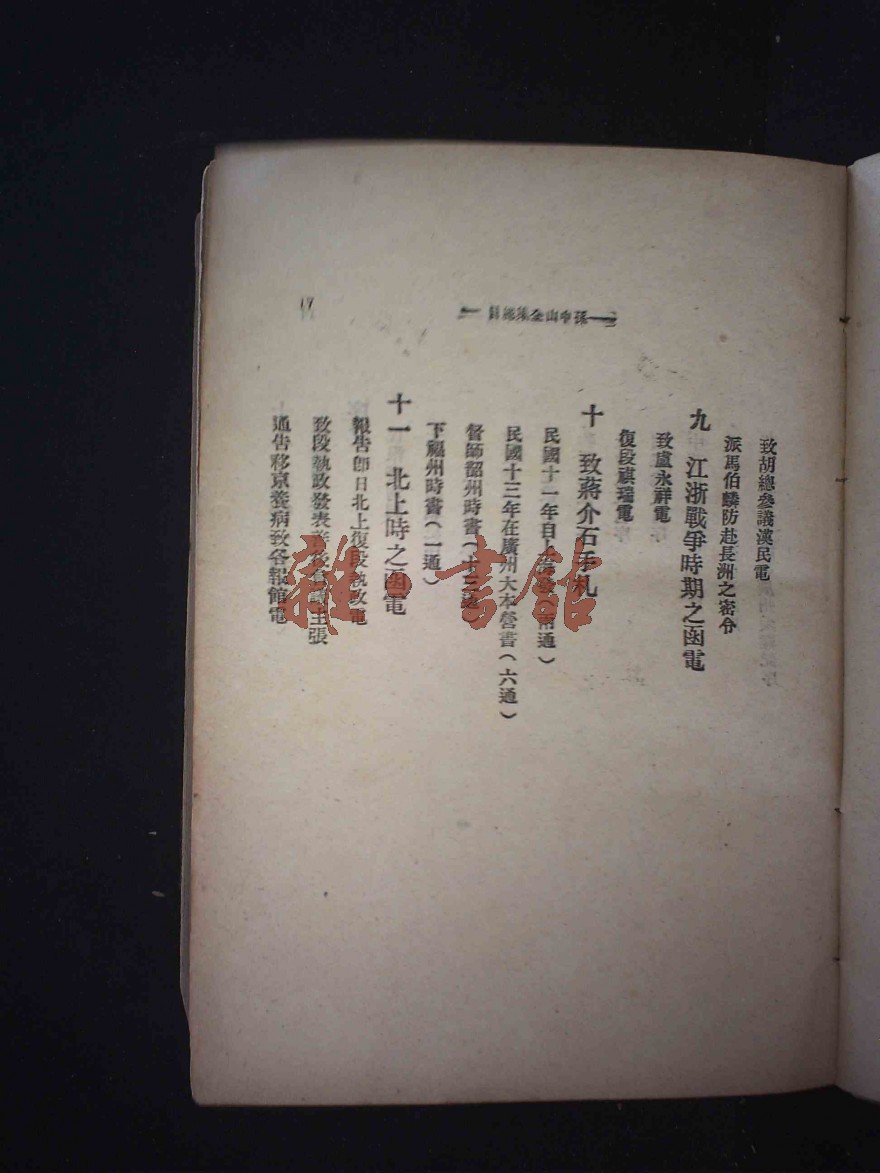 致胡總參議漢民電
派馬伯麟防赴長洲之密令
九 江浙戰爭時期之函電
致盧永祥電
復段祺瑞電
十 致蔣介石手札
民國十一年自上海發(兩通)
民國十三年在廣州大本營書(六通)
督師韶州時書(十三通)
下福州時書(一通)
十一 北上時之函電
報告卽日北上復段執政電
致段執政發表善後會議主張
通告移京養病致各報館電
17
雜·書館